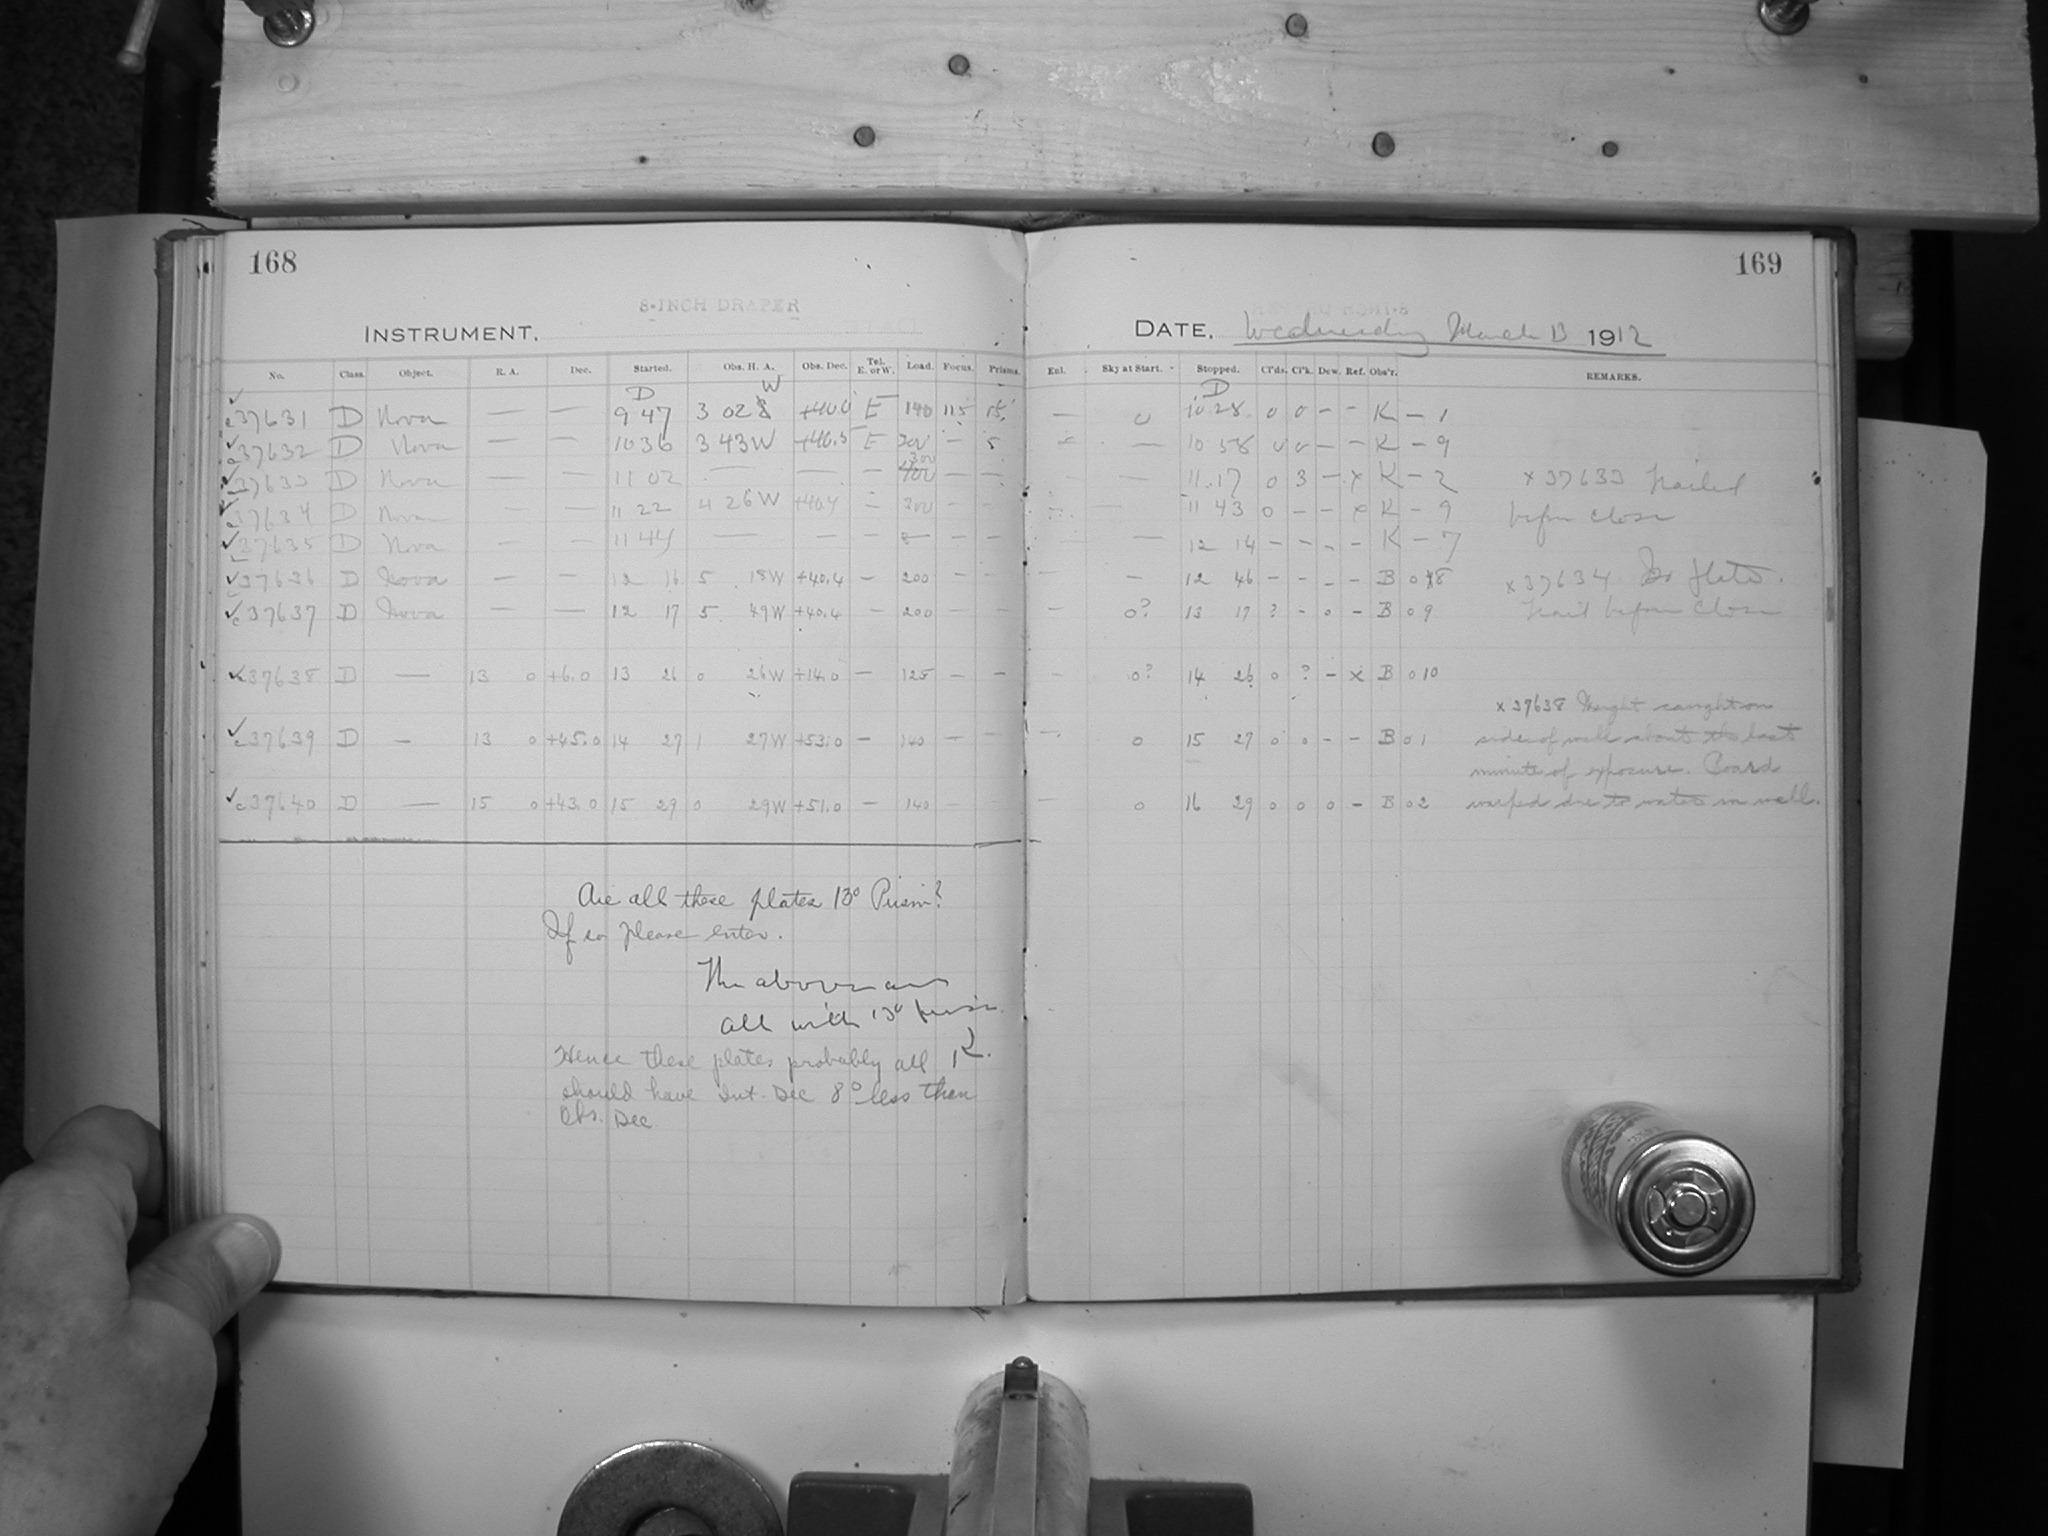 168
169
8-INCH DRAPER
INSTRUMENT.
DATE. Wednesday March 13 1912
No. Class. Object. R. A. Dec. Started. Obs. H. A. Obs. Dec. Tel. E. or W. Load. Focus. Prisms. Enl. Sky at Start. Stopped. Cl'ds. Cl'k. Dew. Ref. Obs'r. REMARKS.
D W D
c37631 D Nova — — 9 47 3 02 +40.0 E 140 115 15 — 0 10 28 0 0 – – K – 1
c37632 D Nova — — 10 36 3 43W +40.5 E 300 – 5 — 10 58 0 0 – – K – 9
300
37633 D Nova — — 11 02 — — – 400 — — — 11 17 0 3 – x K – 2 x 37633 trailed
37634 D Nova — — 11 22 4 26W +40.4 – 300 — 11 43 0 – – x K – 9 before close
37635 D Nova – – 11 44 — — – – – – — 12 14 – – – – K – 7
37636 D Nova — – 12 16 5 18W +40.4 – 200 — – 12 46 – – – – B 0 8 x 37634 Do plate.
c37637 D Nova — — 12 17 5 49W +40.4 – 200 – – – 0? 13 17 ? – 0 – B 0 9 trail before close
37638 D — 13 0 +6.0 13 26 0 26W +14.0 — 125 – – – 0? 14 26 0 ? – x B 0 10
x 37638 Weight caught on
c37639 D – 13 0 +45.0 14 27 1 27W +53.0 – 140 – – – 0 15 27 0 0 – – B 0 1 side of well about the last
minute of exposure. Board
c37640 D — 15 0 +43.0 15 29 0 29W +51.0 – 140 – – 0 16 29 0 0 0 – B 0 2 warped due to water in well.
Are all these plates 13° Prism?
If so please enter.
The above are
all with 13° prism
K.
Hence these plates probably all
should have Int. Dec 8° less than
Obs. Dec